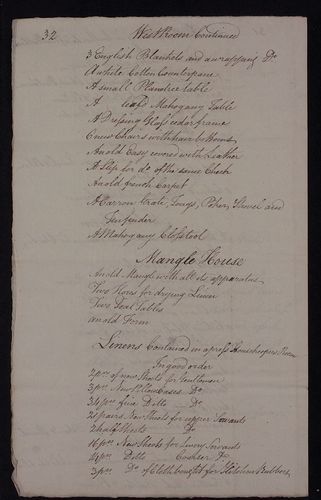 32
West Room Continued
3 English Blankets and an wrapping Do
A white Cotton Counterpane
A small Planetree table
A leafd Mahogany Table
A Dressing Glass cedar frame
6 new Chairs with hair bottoms
An old Easy covered with Leather
A Slip for do of the same Check
An old french Carpet
A Carron Grate, Tongs, Poker, Shovel and
Fenfender
A Mahogany Closstool
Mangle House
An old Mangle with all its apparatus
Two for drying Linen
Two Deal Tables
an old Form
Linens Contained in a press Housekeepers Room
In good order
prs of new Sheets for Gentlemen
3 prs New Pillow Cases Do
34 prs fine Ditto Do
2 pairs New Sheets for upper Servants
2 half Sheets Do
16 prs New Sheets for Livery Servants
prs Ditto Coarser Do
3 prs Do of Cloth bought for Kitchen Rubbers